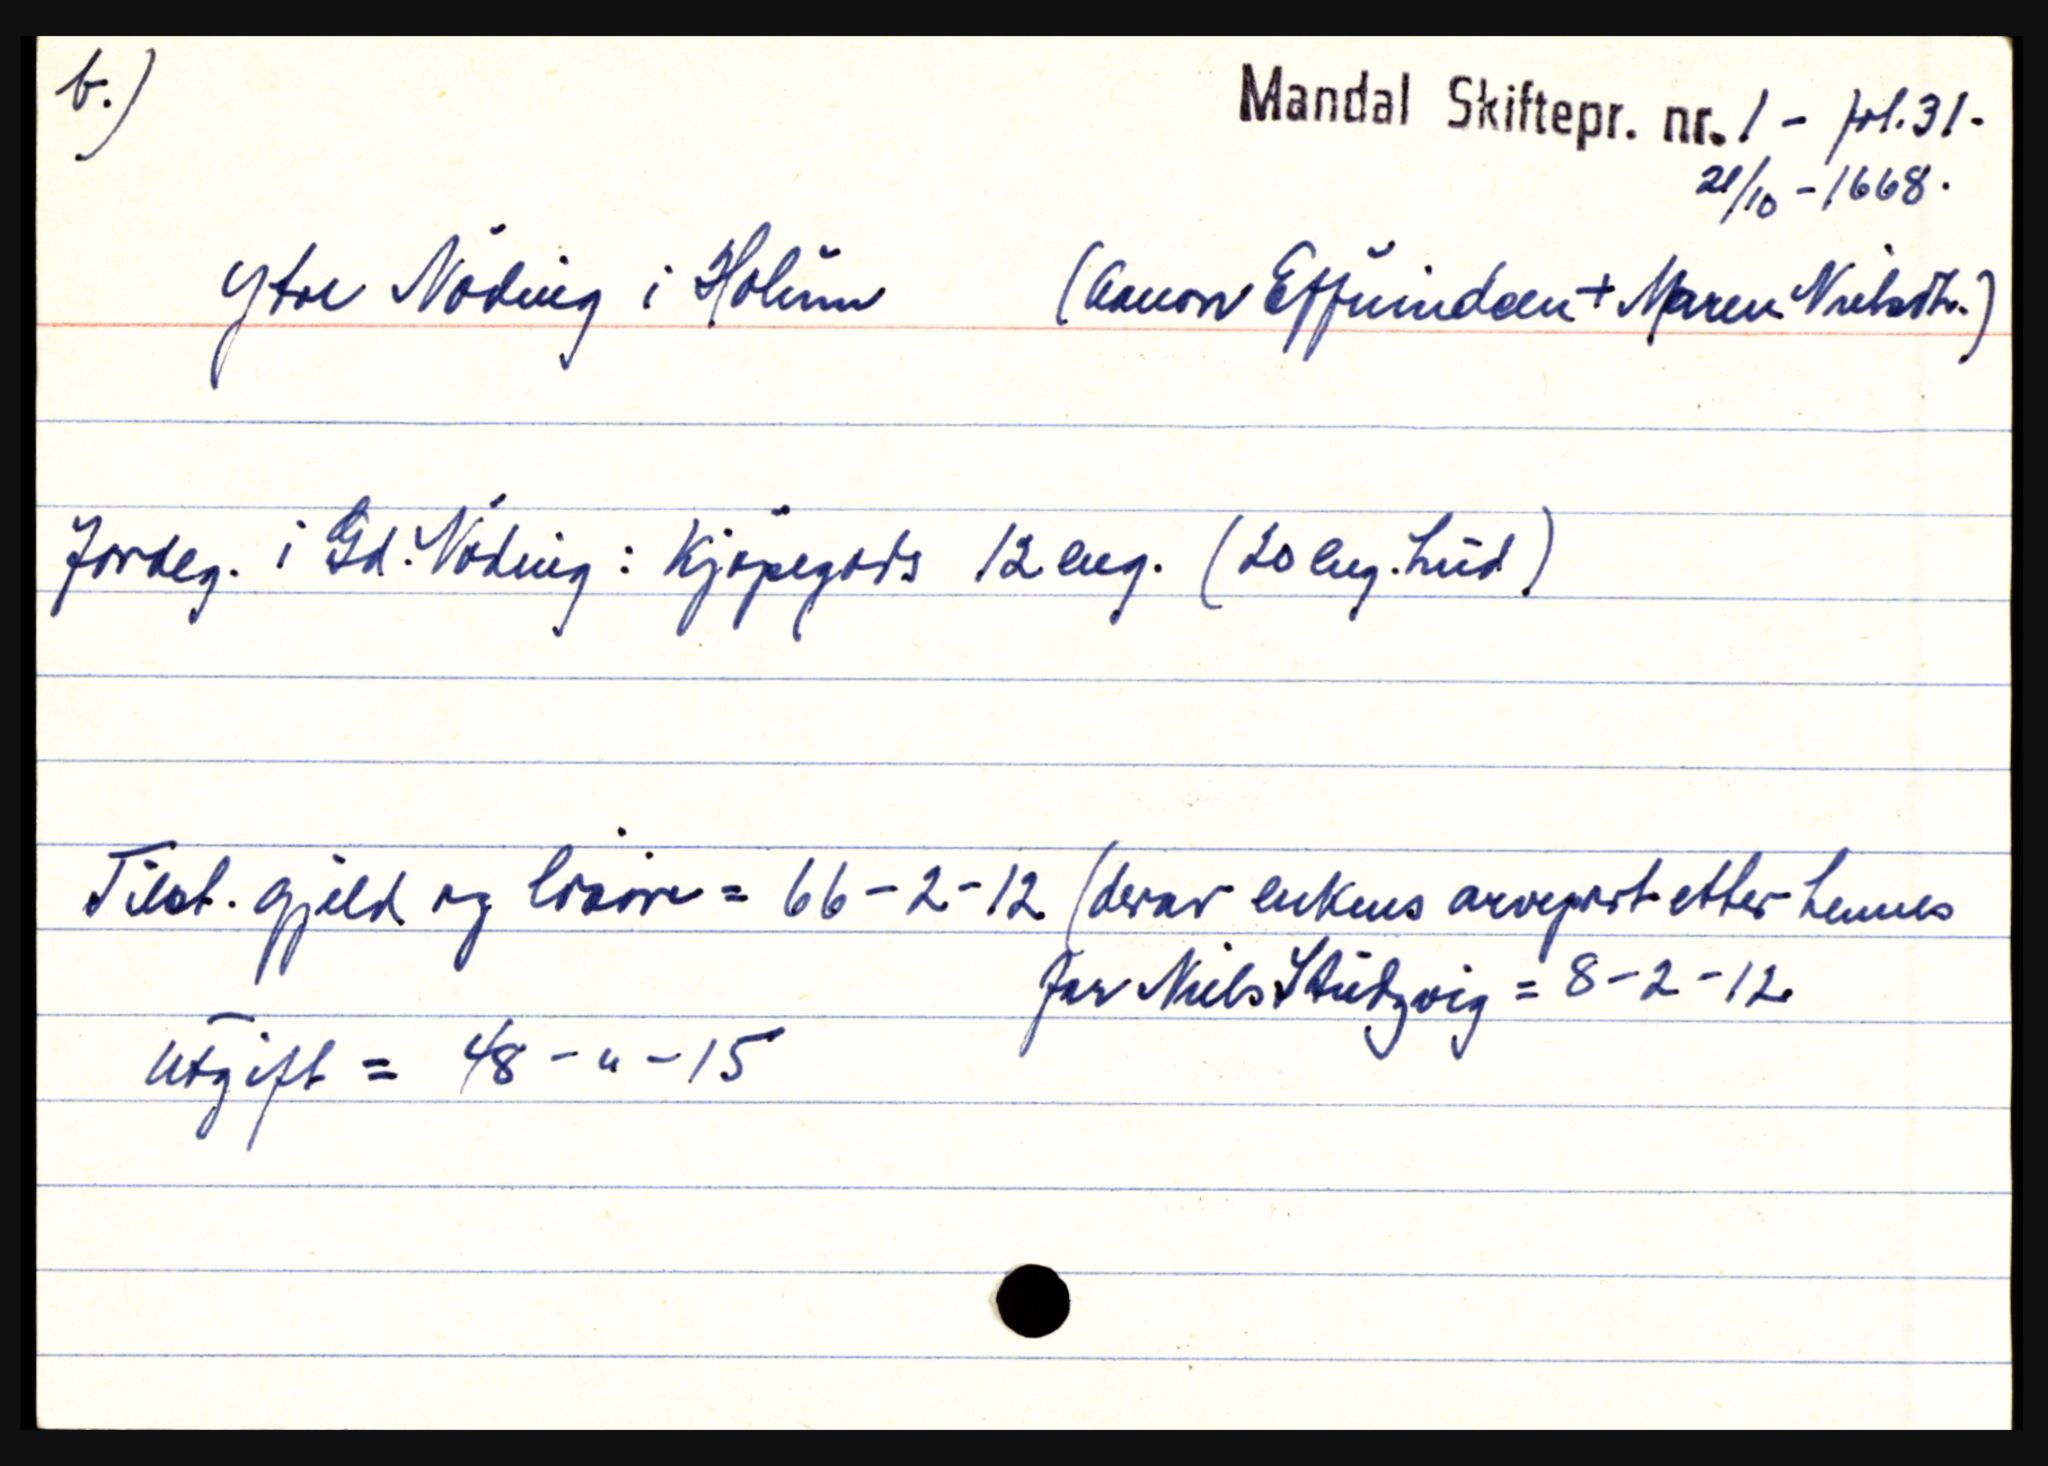 b.)
Mandal Skiftepr. nr. 1 - fol. 31 -
21/10 - 1668.
Ytre Nöding i Holum (Aanon Effuindsen + Maren Nielsdtr.)
Jordeg. i Gd. Nöding: Kjöpegods 12 eng. (20 eng. hud)
Tilst. gjeld og lösöre = 66 - 2 - 12 (derav enkens arvepart etter hennes
far Niels Studzvig = 8 - 2 - 12.
Utgift = 48 - " - 15